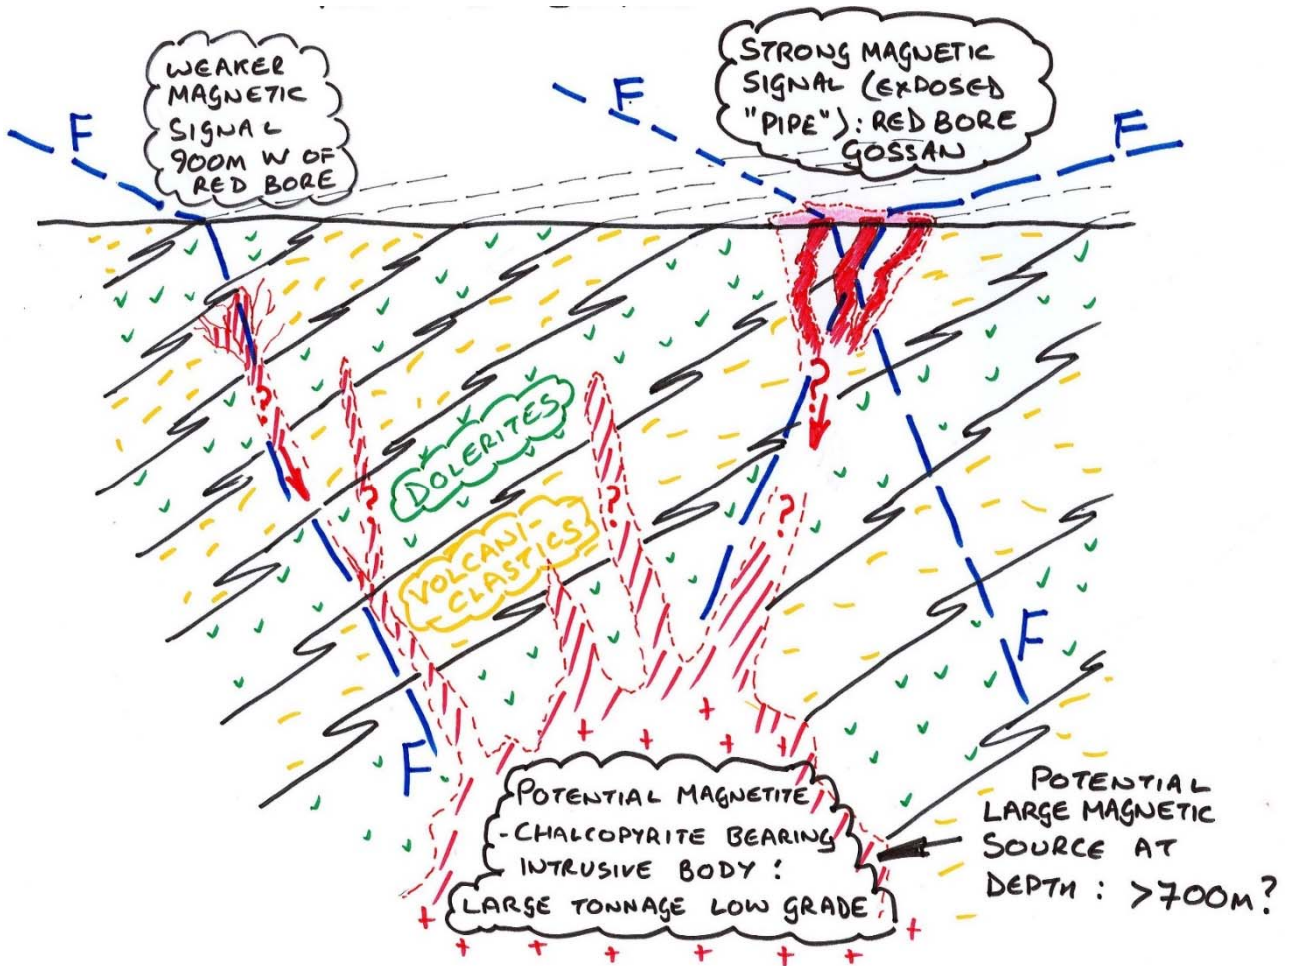 WEAKER
MAGNETIC
SIGNAL
900M W OF
RED BORE
STRONG MAGNETIC
SIGNAL (EXPOSED
"PIPE"): RED BORE
GOSSAN
F
F
F
?
?
?
?
?
DOLERITES
VOLCANI-
CLASTICS
F
F
POTENTIAL MAGNETITE
-CHALCOPYRITE BEARING
INTRUSIVE BODY :
LARGE TONNAGE LOW GRADE
POTENTIAL
LARGE MAGNETIC
SOURCE AT
DEPTH : >700M?